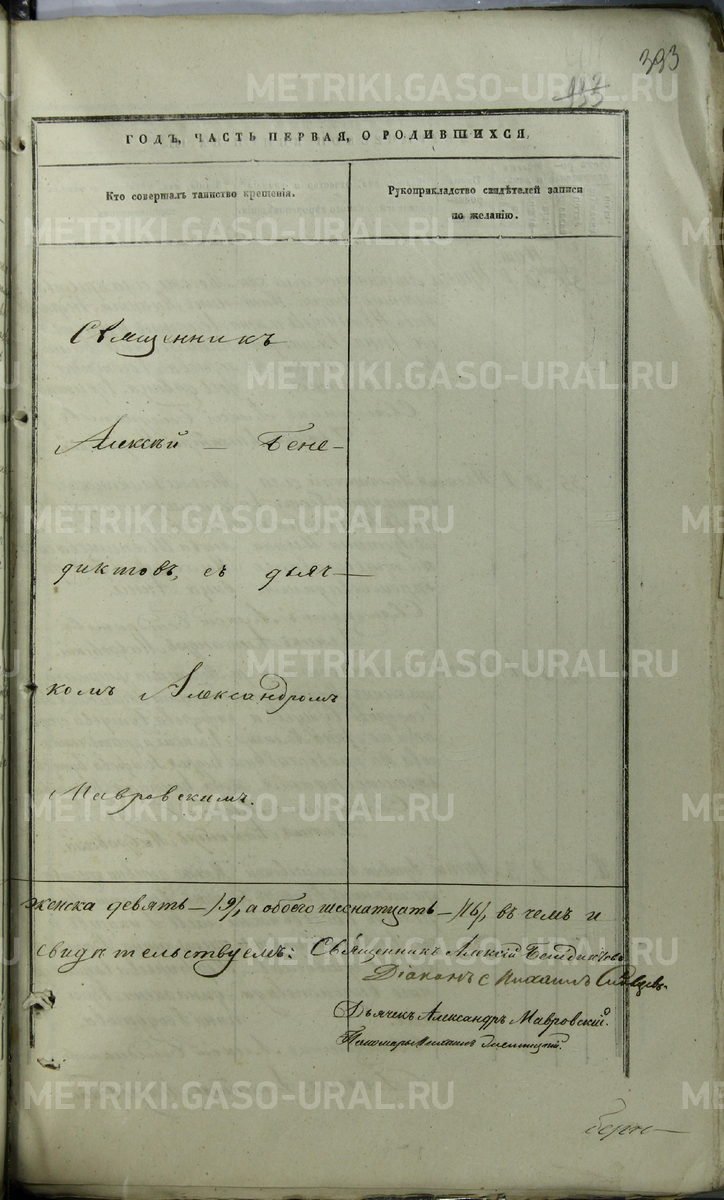 393
ГОДЪ, ЧАСТЬ ПЕРВАЯ, О РОДИВШИХСЯ,
Кто совершалъ таинство крещенія.
Рукоприкладство свидѣтелей записи
по желанію.
Священникъ
Алексѣй — Бене-
диктовъ, съ дьяч-
комъ Александромъ
Мавровскимъ.
женска девять — /9/, а обоего шеснатцать — /16/, въ чемъ и
свидѣтельствуемъ: Священникъ Алексій Бенедиктовъ
Діаконъ
Дьячекъ Александръ Мавровскій
Пономарь
METRIKI.GASO-URAL.RU